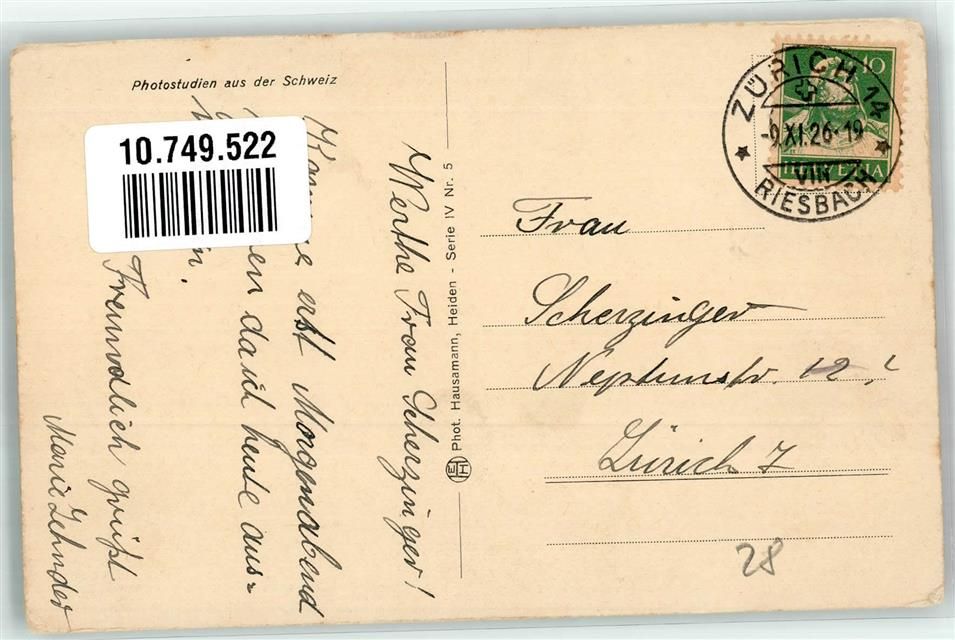 Photostudien aus der Schweiz
10.749.522
Werthe Frau Scherzinger!
Komme erst Morgenabend
da ich heute aus-
Freundlich grüßt
Marie Zehnder
Phot. Hausamann, Heiden - Serie IV Nr. 5
EH
ZÜRICH 14
-9.XI.26-19
VIII
RIESBACH
10
HELVETIA
Frau
Scherzinger
Neptunstr. 12
Zürich 7
28